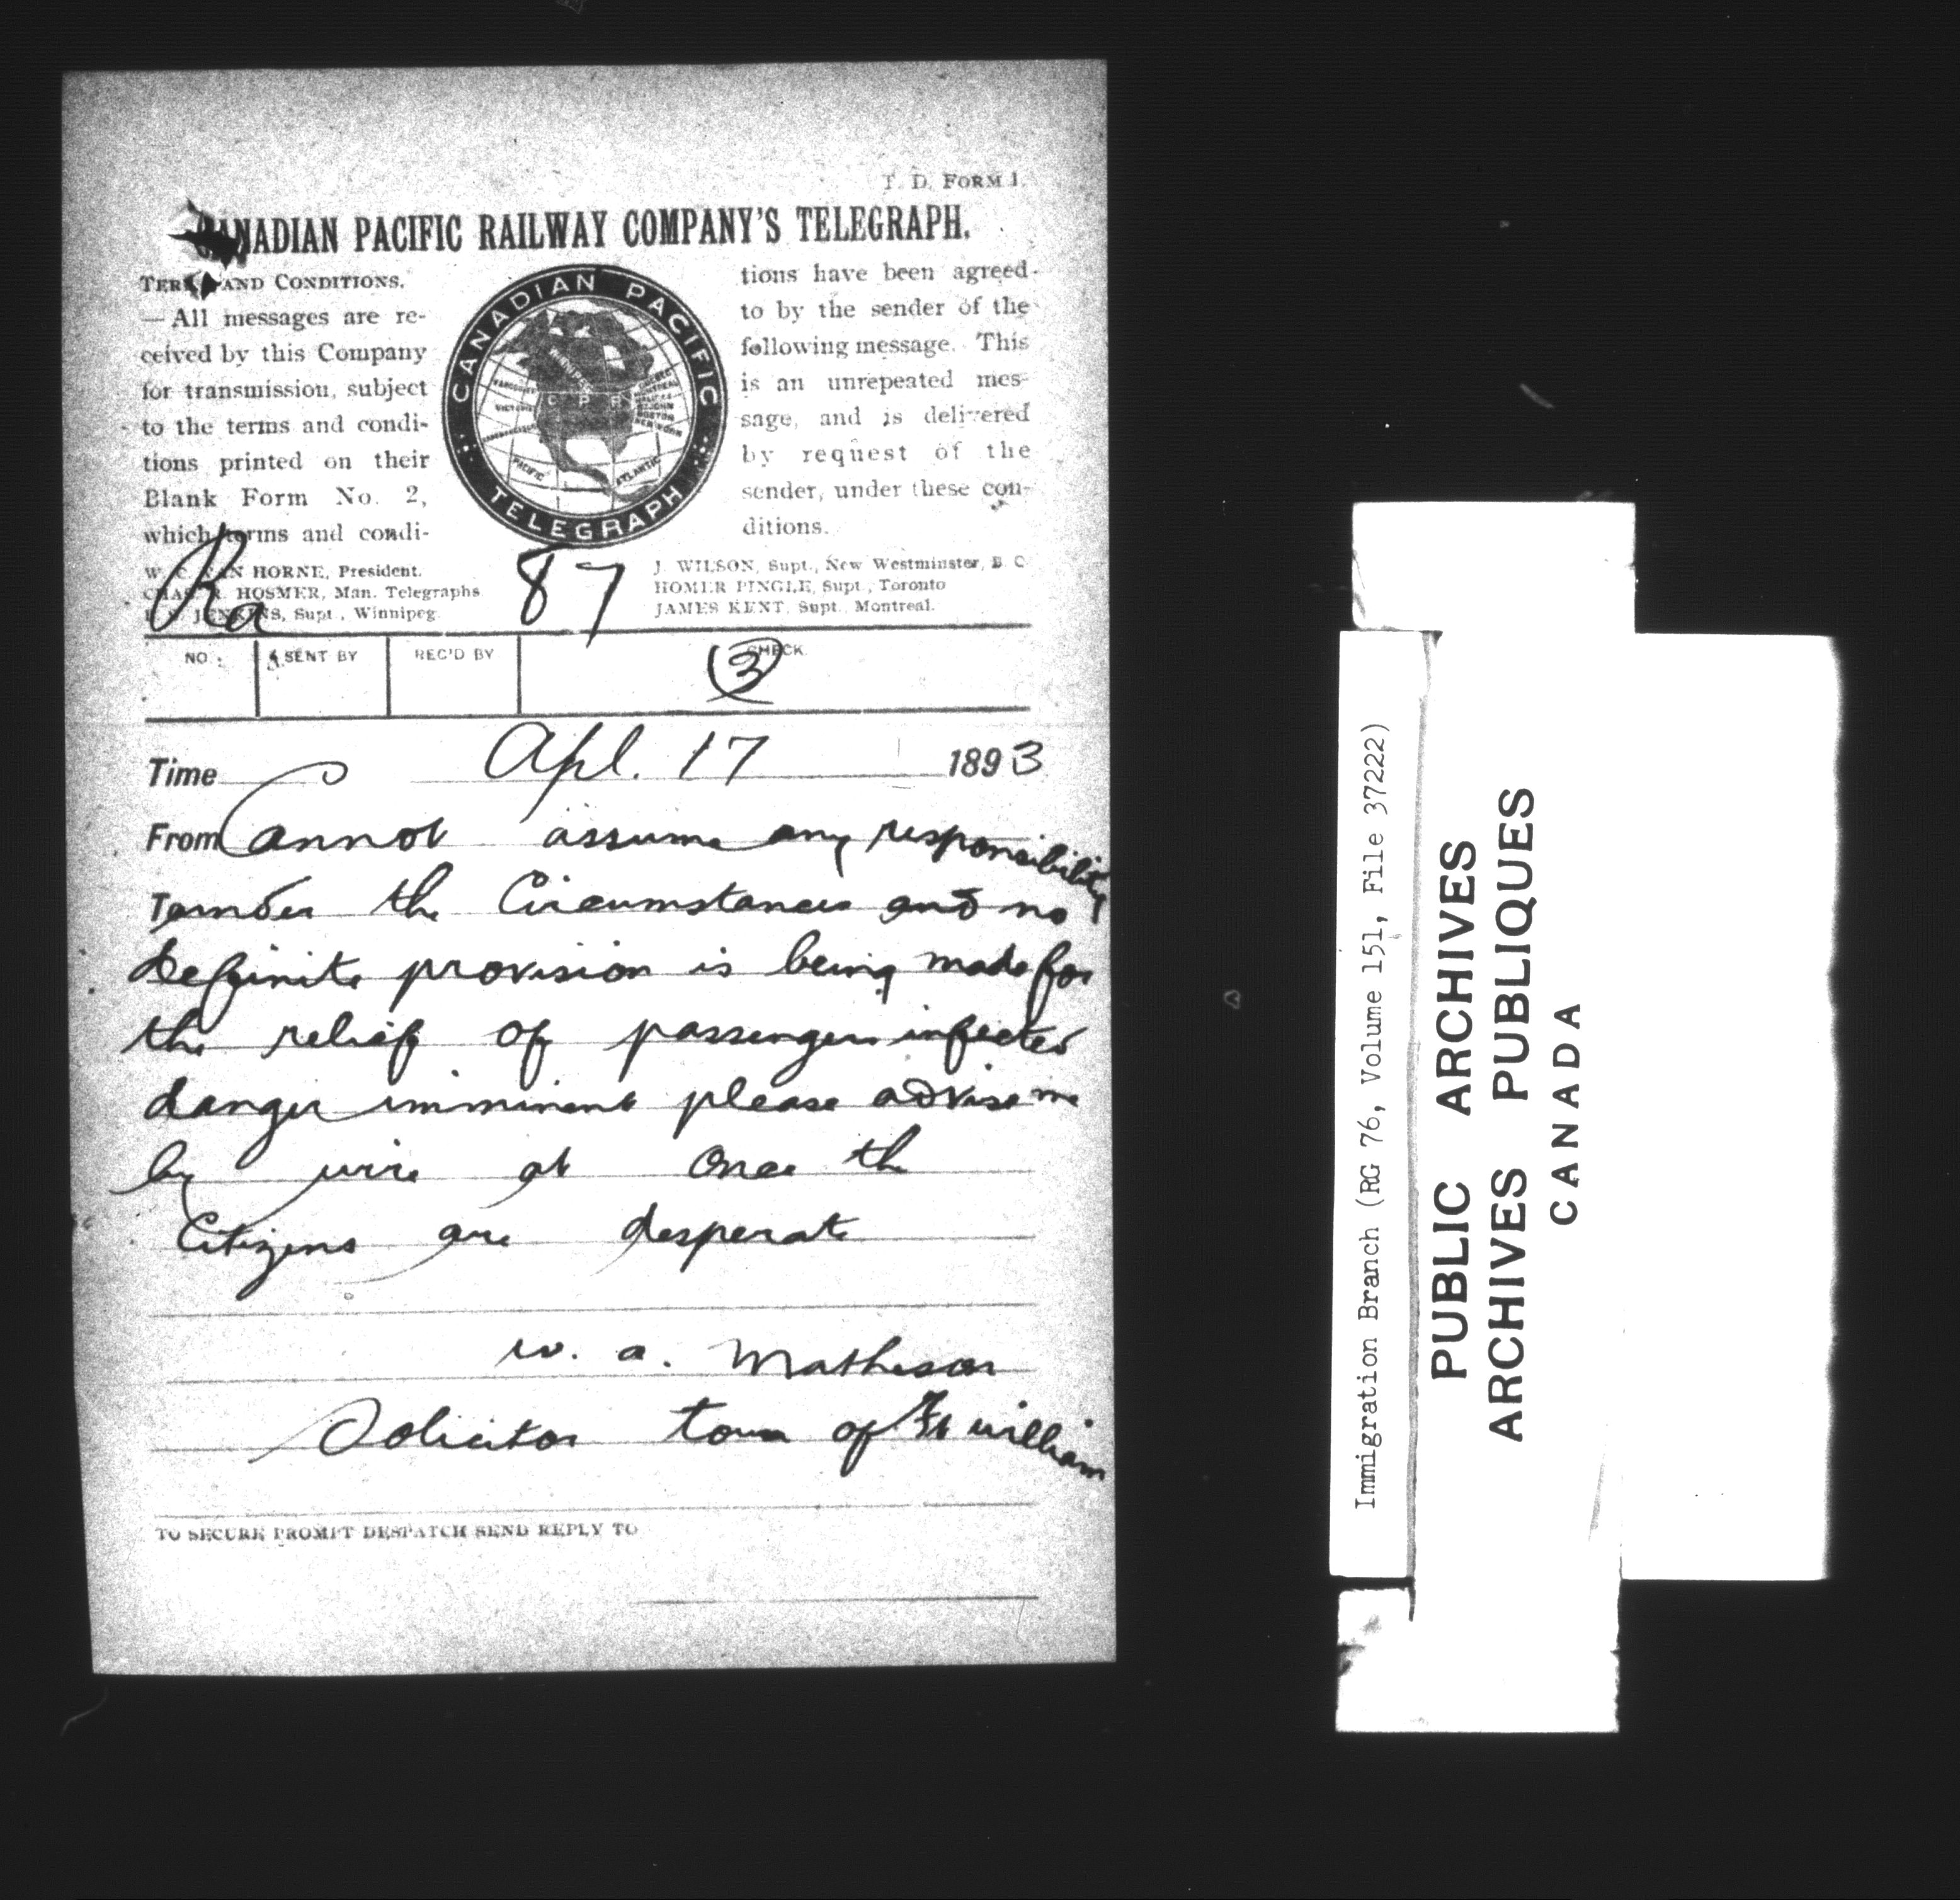 T. D. FORM 1.
CANADIAN PACIFIC RAILWAY COMPANY'S TELEGRAPH.
TERMS AND CONDITIONS.
—All messages are re-
ceived by this Company
for transmission, subject
to the terms and condi-
tions printed on their
Blank Form No. 2,
which terms and condi-
tions have been agreed
to by the sender of the
following message. This
is an unrepeated mes-
sage, and is delivered
by request of the
sender, under these con-
ditions.
CANADIAN PACIFIC
TELEGRAPH
WINNIPEG
VANCOUVER
VICTORIA
C P R
QUEBEC
MONTREAL
HALIFAX
ST JOHN
BOSTON
NEW YORK
PACIFIC
ATLANTIC
W. C. VAN HORNE, President.
CHAS. R. HOSMER, Man. Telegraphs.
JENKINS, Supt., Winnipeg.
J. WILSON, Supt., New Westminster, B. C
HOMER PINGLE, Supt., Toronto
JAMES KENT, Supt., Montreal.
Ra 87
NO. SENT BY REC'D BY CHECK
3
Time Apl. 17 1893
From Cannot assume any responsibility
To under the Circumstances and no
definite provision is being made for
the relief of passengers infected
danger imminent please advise me
by wire at once the
Citizens are desperate
W. A. Matheson
Solicitor town of Ft william
TO SECURE PROMPT DESPATCH SEND REPLY TO
Immigration Branch (RG 76, Volume 151, File 37222)
PUBLIC ARCHIVES
ARCHIVES PUBLIQUES
CANADA